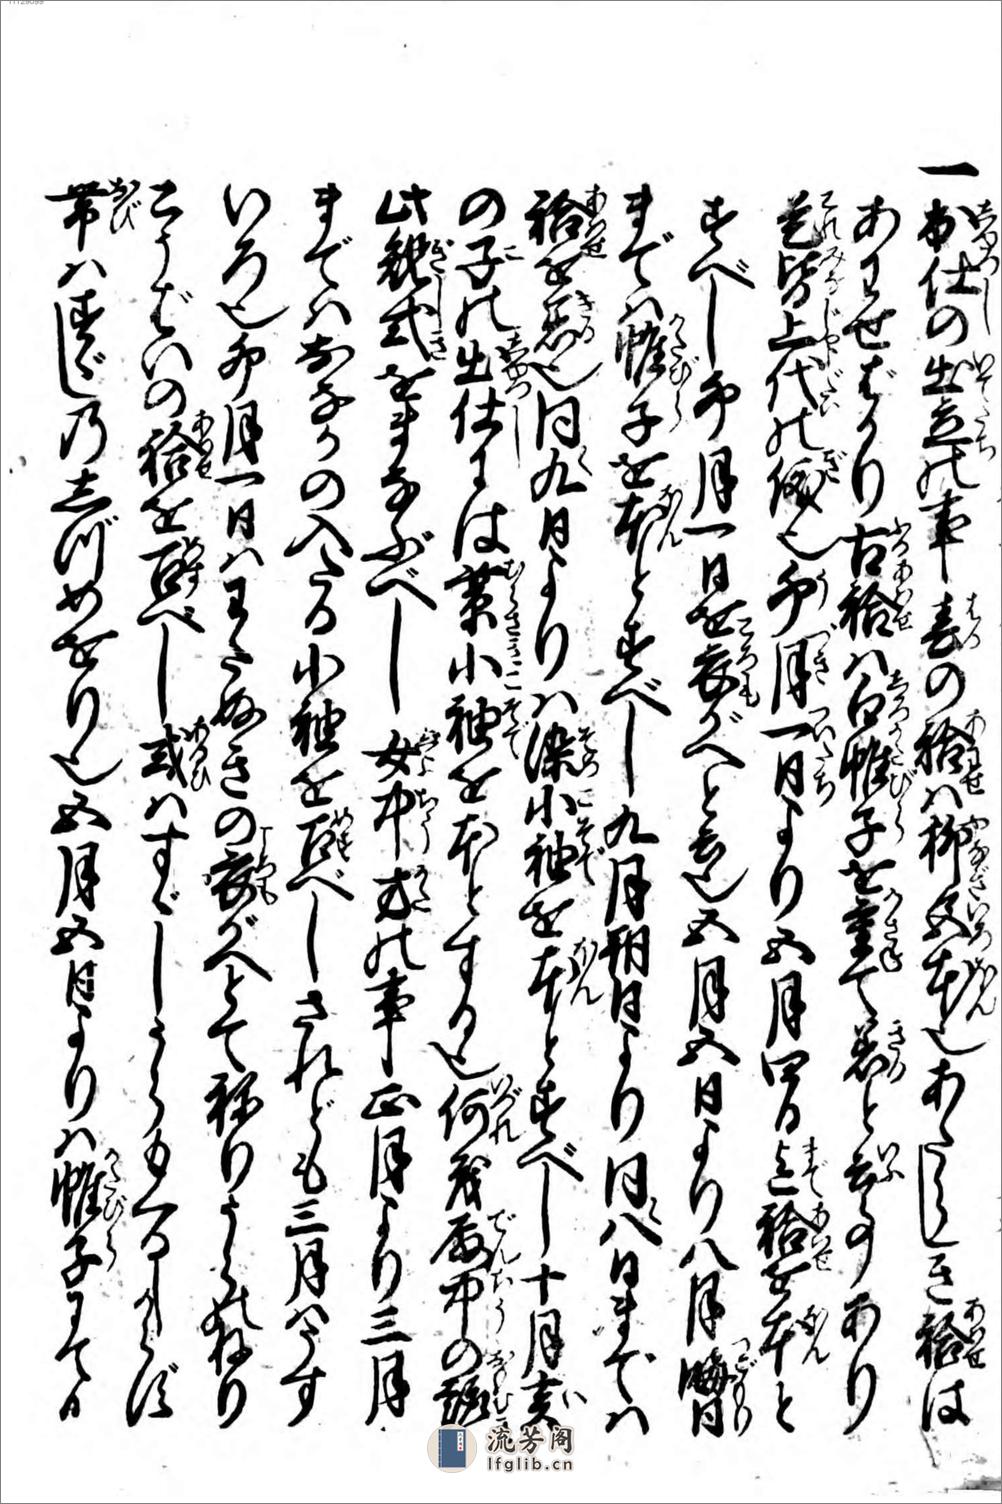 一 出仕の出立の事 春の袷は柳色本也あたらしき袷は
あわせばかり古袷ハ白帷子を重て着と云事あり
是皆上代の儀也卯月一日より五月四日迄袷を本と
すべし卯月一日を衣がへと云也五月五日より八月晦日
までハ帷子を本とすべし九月朔日より同八日までハ
袷を着也同九日よりハ染小袖を本とすべし十月亥
の子の出仕には紫小袖を本とする也何茂殿中の
此規式をまなぶべし 女中方の事 正月より三月
まではおもての入たる小袖を召べしされども三月ハうす
いろ也卯月一日ハわたぬきの衣がへとて ねりうらのねり
こうばいの袷を召べし或ハすゞしうら
帯ハすゞしの 也五月五日よりハ帷子にて
流芳阁
lfglib.cn